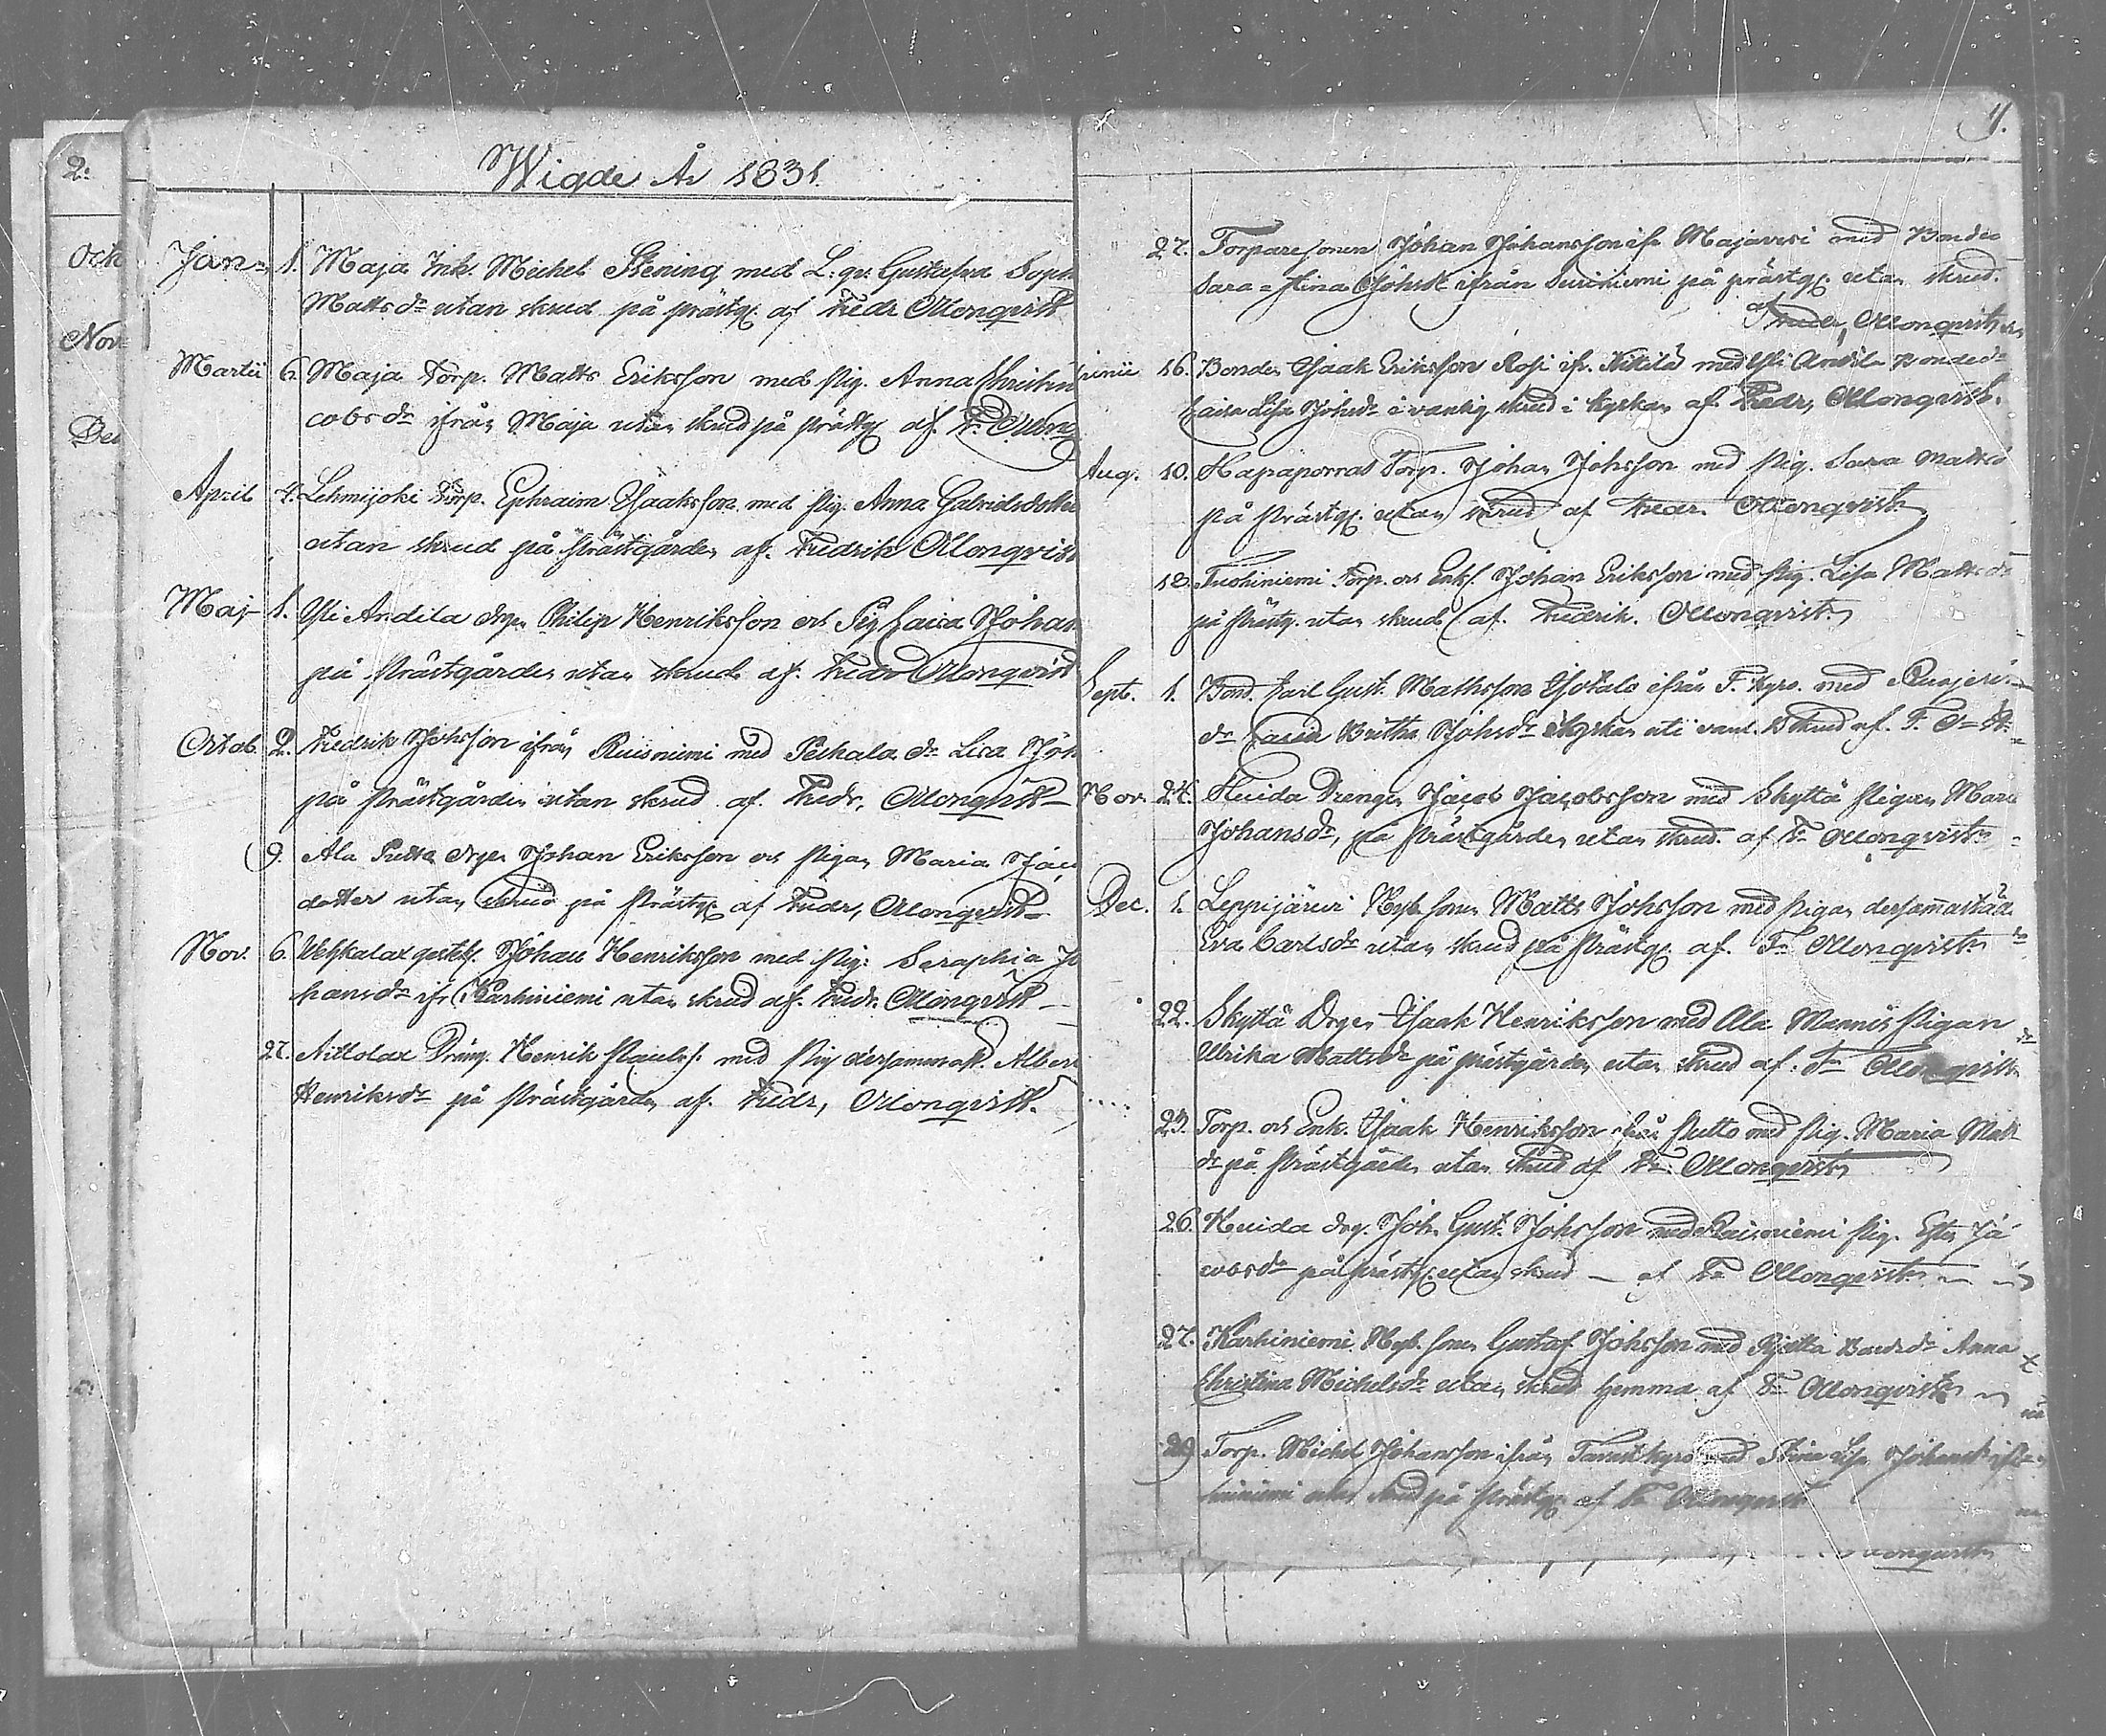 2.
Octb
Nov
Dec
Wigde År 1831.
Jan. 1. Maja Inh. Michel Stening med L. qv. Gustafva Soph
Mattsdr utan skrud på prästg. af Fredr Ollonqvist
Martii 6. Maja Torp. Matts Eriksson med pig. Anna Christin
cobsdr ifrån Maja utan skrud på prästg. af Fr. Ollonq
April 4. Lehmijoki Torp. Ephraim Isaaksson med pig. Anna Gabrielsdotter
utan skrud på prästgården af. Fredrik Ollonqvist
Maj 1. Yli Andila drgen Philip Henriksson och Pig Caisa Johan
på Prästgården utan skrud af. Fredr Ollonqvist
Octob. 2. Fredrik Johsson ifrån Ruisniemi med Peikala dr Lisa Joh
på prästgården utan skrud af. Fredr. Ollonqvist
9. Ala Putta drgen Johan Eriksson och pigan Maria Jac
dotter utan skrud på Prästg. af Fredr, Ollonqvist
Nov. 6. Johan Henriksson med pig: Seraphia Jo
hansdr ifr Karhiniemi utan skrud af. Fredr. Ollonqvist
27. Dräng. Henrik Paulss. med pig dersammast. Alber
Henriksdr på Prästgården af. Fredr, Ollonqvist.
27. Torparesonen Johan Johansson ifr Majavesi med Bonded
Sara Stina Johsdr ifrån Suiniemi på prästg. utan skrud.
af Fredr, Ollonqvist
Junii 16. Bonden Isaak Eriksson Rosi ifr. Kittilä med Yli Andila Bondedr
Caisa Lisa Johsdr i vanlig skrud i kyrkan af Fredr, Ollonqvist.
Aug. 10. Hapaporras Torp. Johan Johsson med pig. Sara Mattsd
på prästg. utan skrud af Fredr. Ollonqvist
12. Tuohiniemi Torp. och Enkl. Johan Eriksson med pig. Lisa Mattsdr
på prästg. utan skrud af. Fredrik. Ollonqvist
Sept. 1. Bond. Carl Gust. Mathsson ifrån T. kyro. med
dr Caisa Britha Johsdr i kyrkan uti vanl. skrud af. F.
Nov. 24. Heida Drengen Jacob Jacobsson med Skyttä pigan Maria
Johansdr, på prästgården utan skrud. af Fr Ollonqvist
Dec. 1. Leppijärvi Nyb. sonen Matts Johsson med pigan dersammastädes
Eva Carlsdr utan skrud på Prästg. af. Fr Ollonqvist
22. Skyttä Drgen Isaak Henriksson med Ala Mannis Pigan
Ulrika Mattsdr på prästgården utan skrud af. Fr Ollonqvist
23. Torp. och Enk. Isaak Henriksson ifrån Putto med pig. Maria Matt
dr på prästgården utan skrud af Fr Ollonqvist
26. Heida drg. Joh. Gust. Johsson med Ruisniemi pig. Ester Ja
cobsdr på prästg. utan skrud af Fr Ollonqvist
27. Karhiniemi Nyb. sonen Gustaf Johsson med Bondedr Anna
Christina Michelsdr utan skrud hemma af Fr Ollonqvist
29. Torp. Michel Johansson ifrån Tavastkyro med Stina Lisa Johansdr
utan skrud på prästg. af Fr Ollonqvist